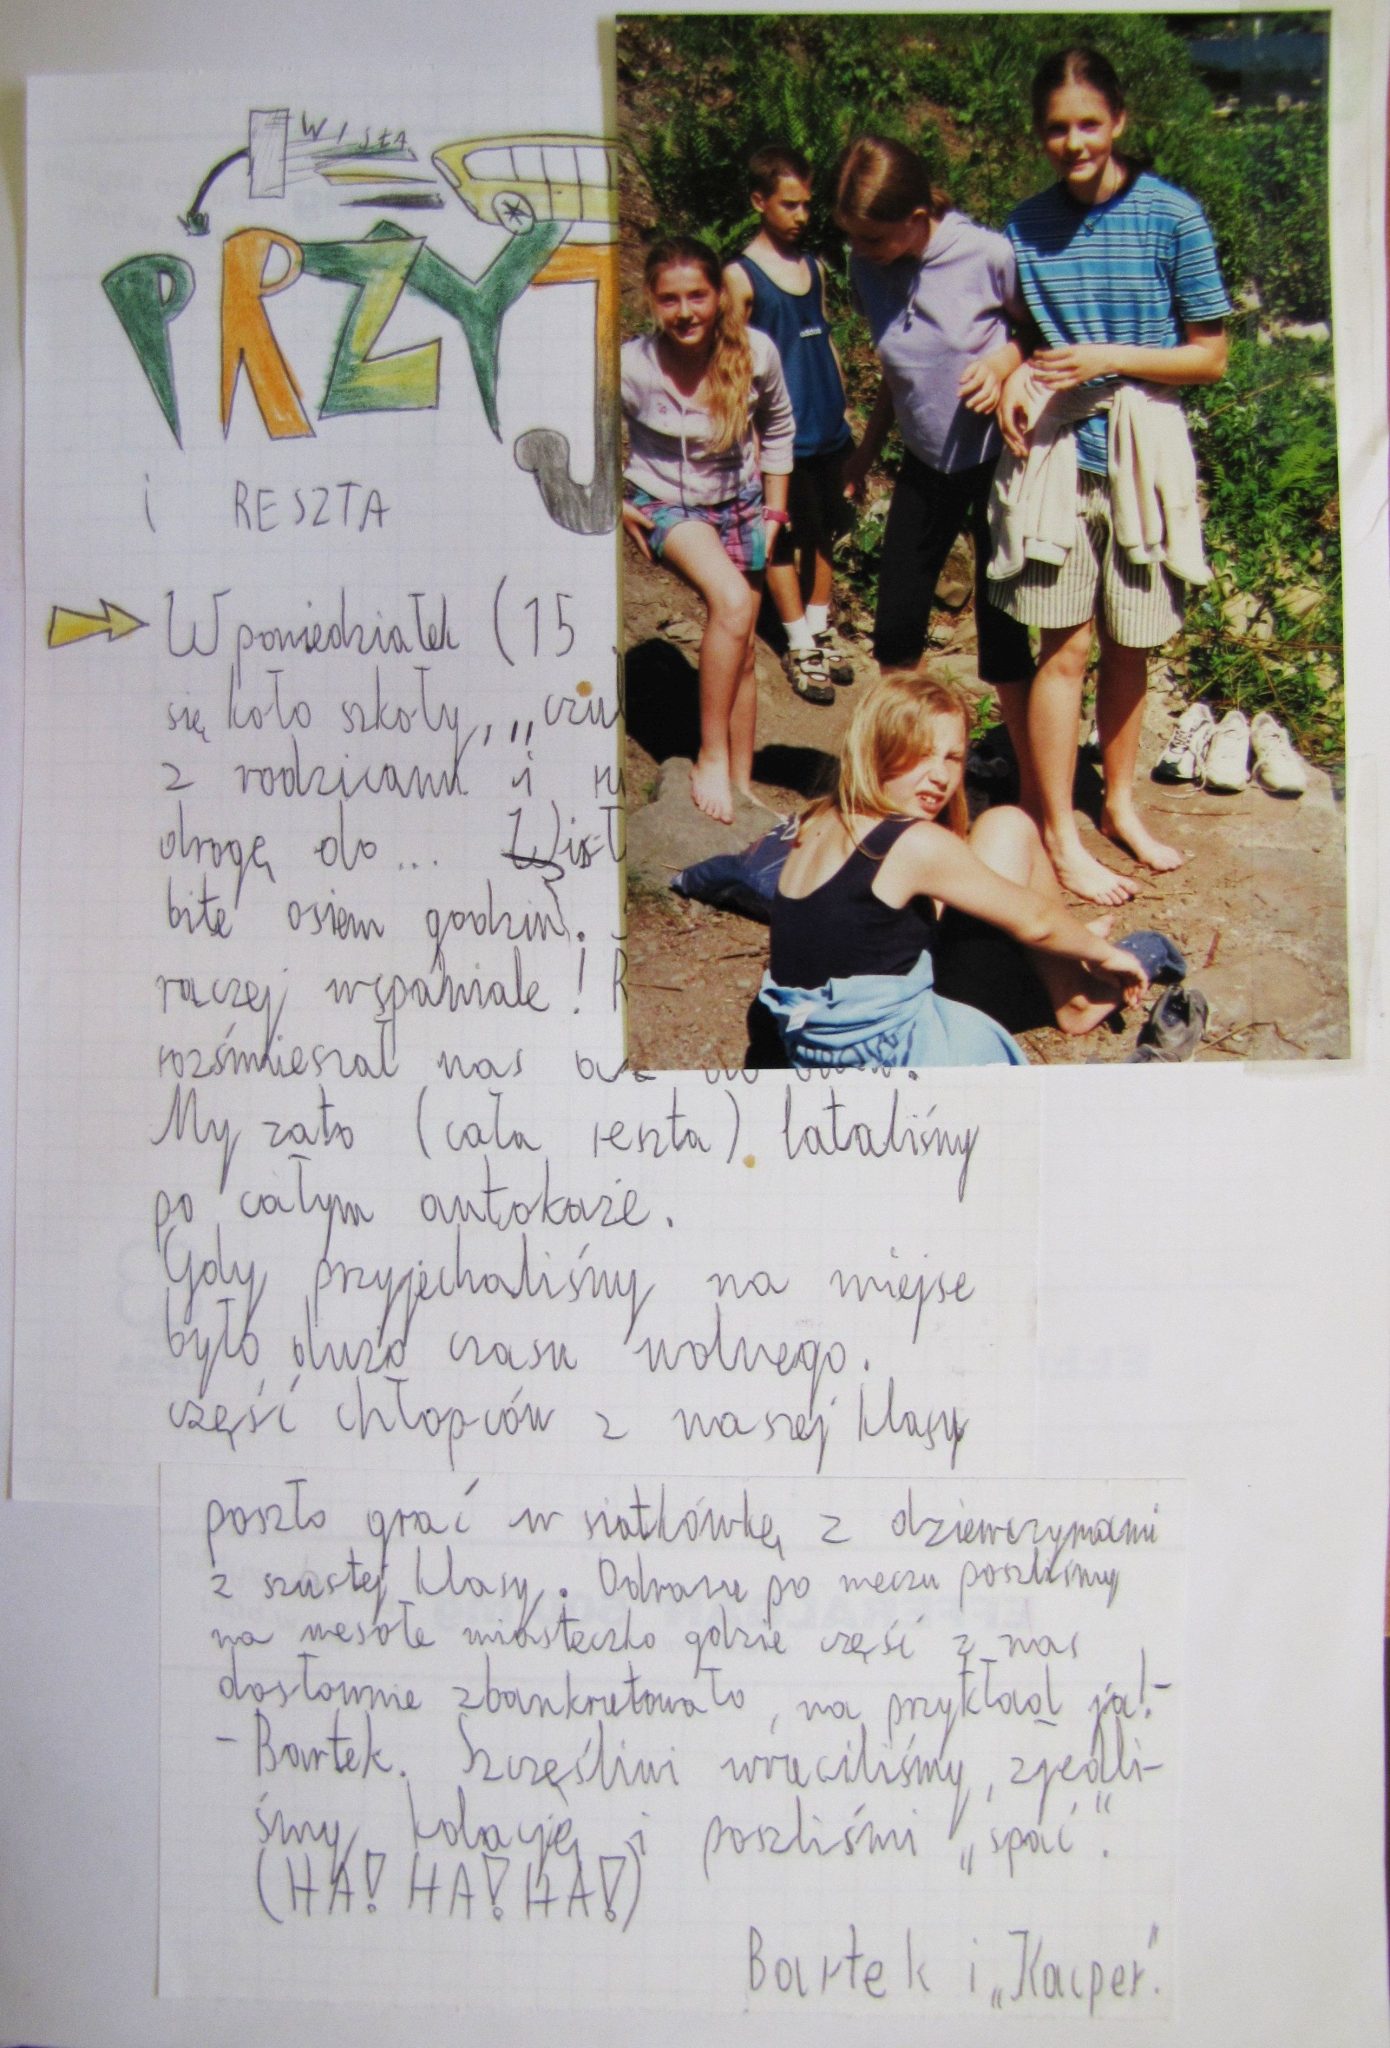 WISŁA
PRZYJ
i RESZTA
W poniedziałek (15
się koło szkoły, „czu
z rodzicami i ru
drogę do... Wisł
bite osiem godzin.
raczej wspaniale! R
rozśmieszał nas
My zato (cała reszta) lataliśmy
po całym autokaże.
Gdy przyjechaliśmy na miejse
było dużo czasu wolnego.
część chłopców z naszej klasy
poszło grać w siatkówkę z dziewczynami
z szustej klasy. Odrazu po meczu poszliśmy
na wesołe miasteczko gdzie część z nas
dosłownie zbankrutowało, na przykład ja!-
- Bartek. Szczęśliwi wróciliśmy, zjedli-
śmy kolację i poszliśmi „spać”.
(HA! HA! HA!)
Bartek i „Kacper”.